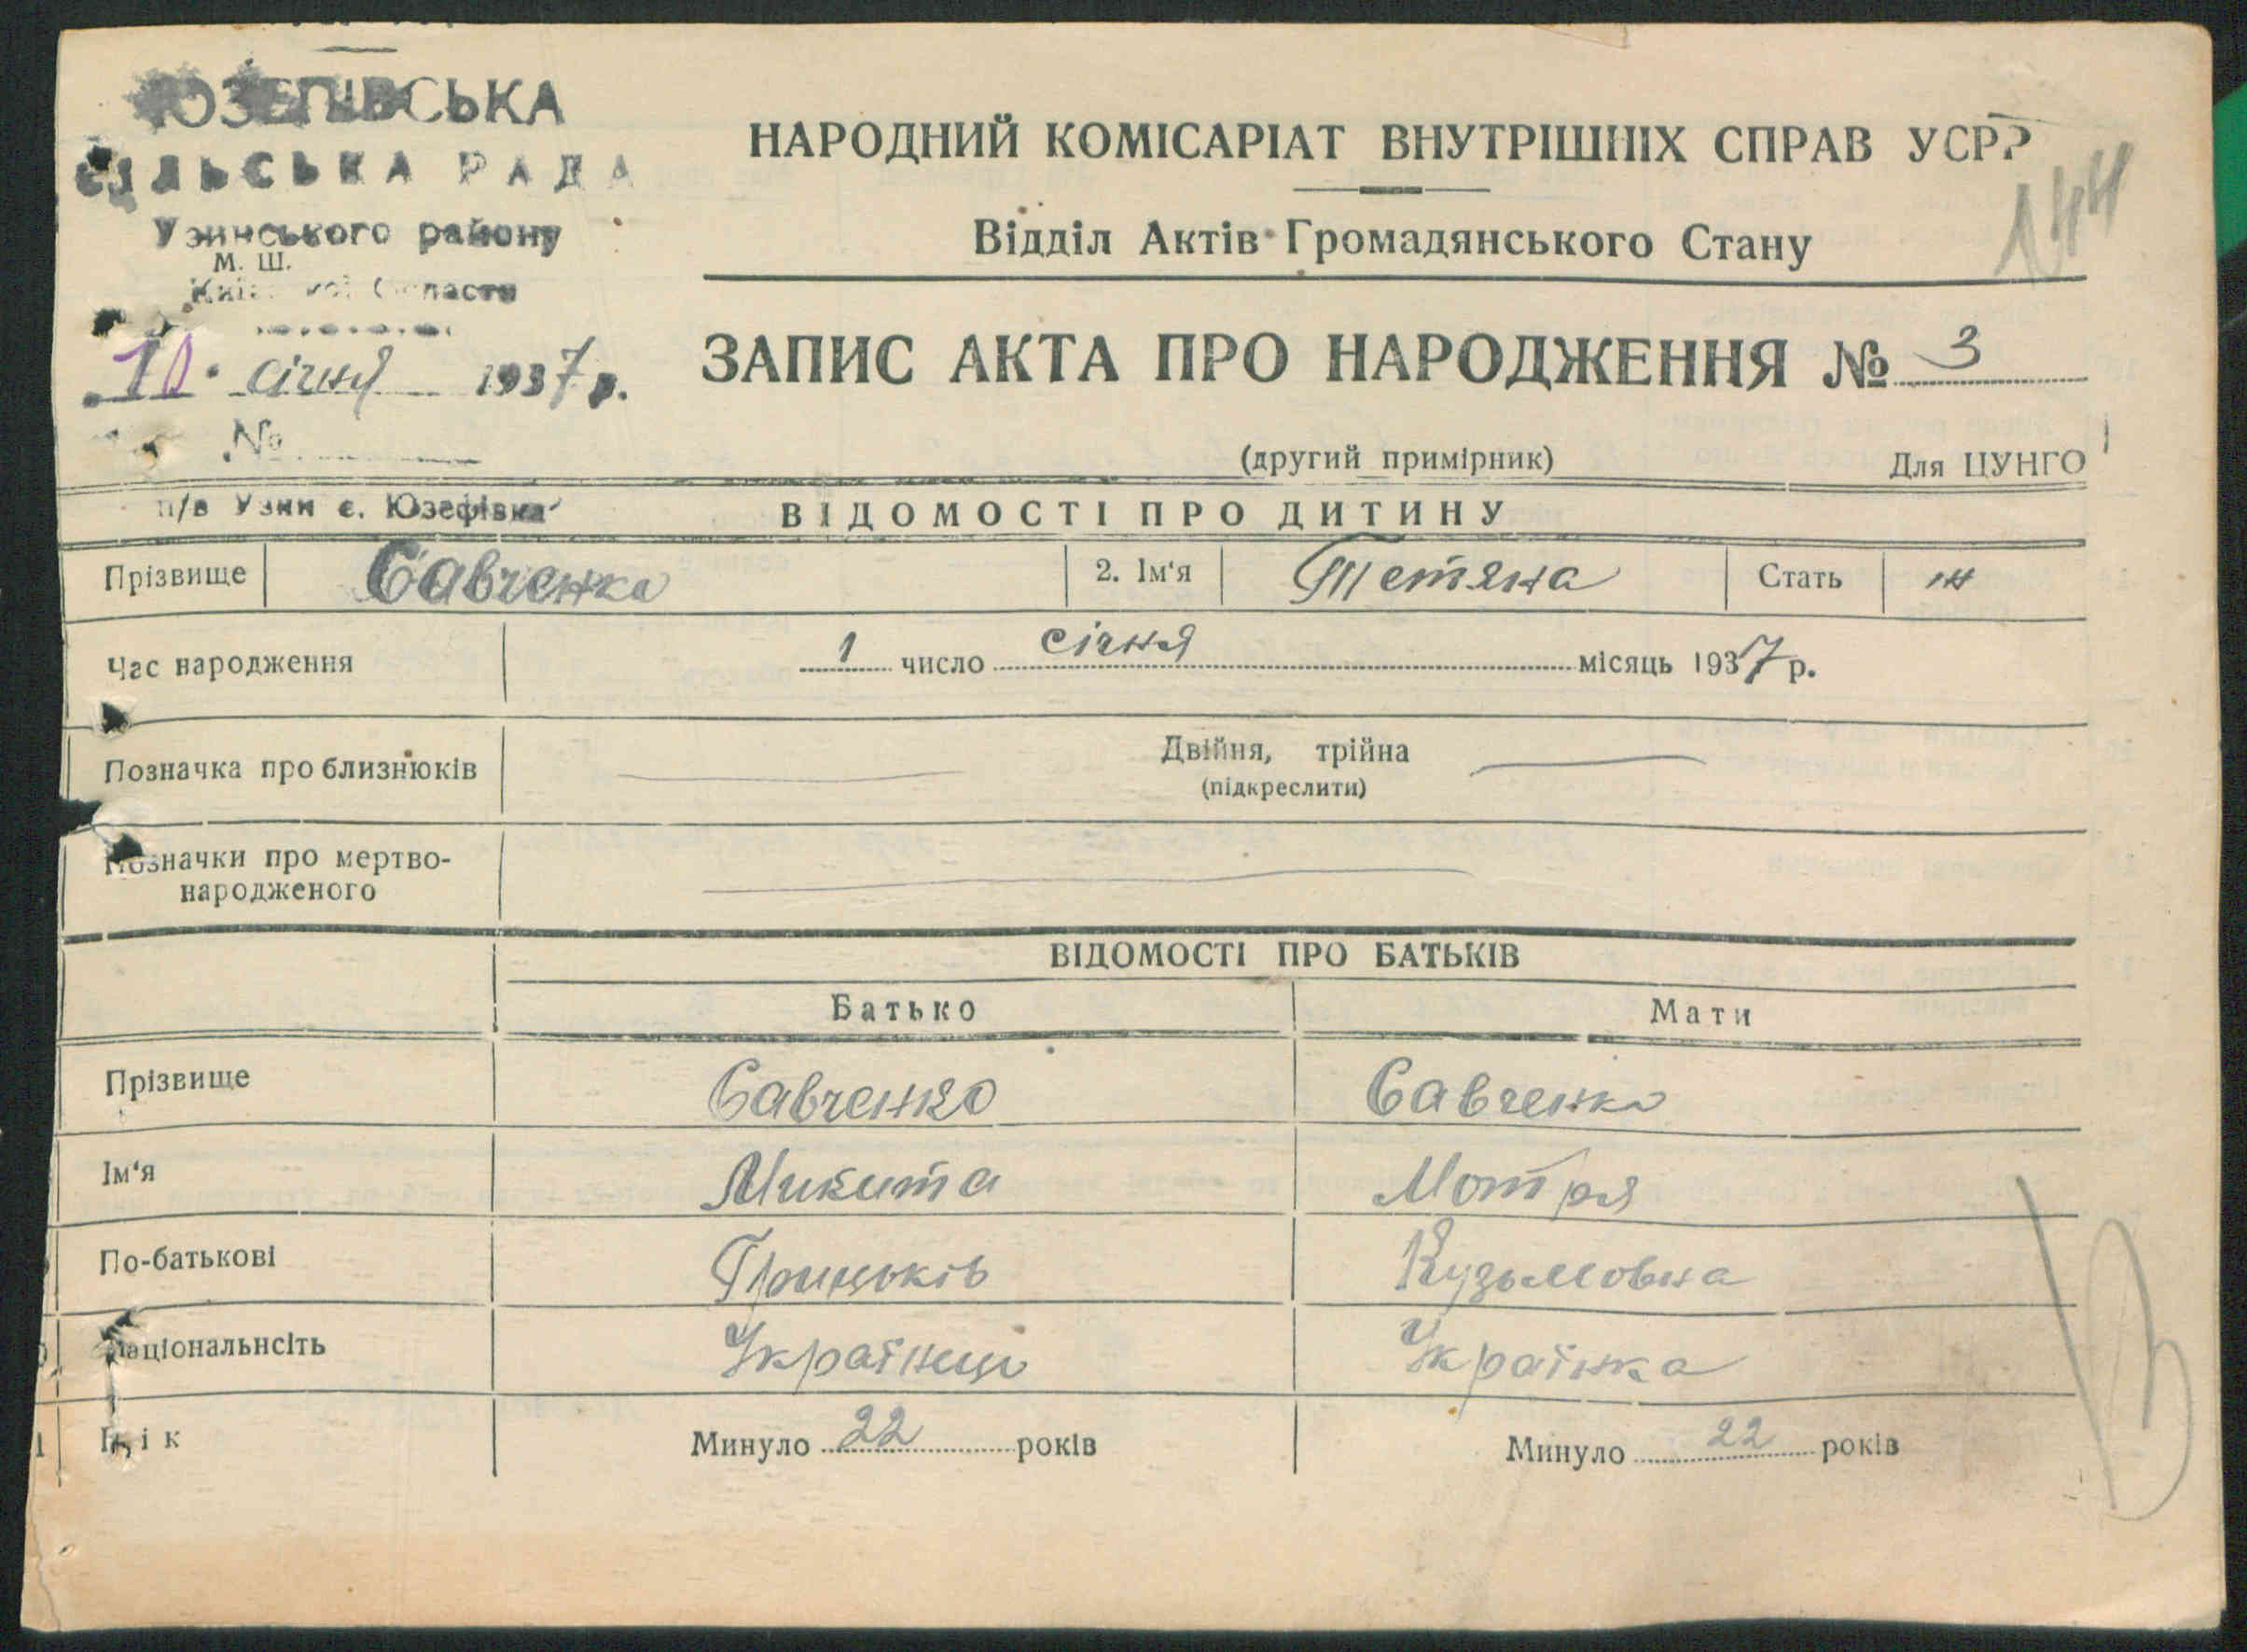 ЮЗЕПІВСЬКА
СІЛЬСЬКА РАДА
Узинського району
М. Ш.
Київської Області
10 січня 1937 р.
№
п/в Узин с. Юзефівка
НАРОДНИЙ КОМІСАРІАТ ВНУТРІШНІХ СПРАВ УСРР
144
Відділ Актів Громадянського Стану
ЗАПИС АКТА ПРО НАРОДЖЕННЯ № 3
(другий примірник) Для ЦУНГО
ВІДОМОСТІ ПРО ДИТИНУ
Прізвище Савченко 2. Ім‘я Тетяна Стать ж
Час народження 1 число січня місяць 1937 р.
Позначка про близнюків Двійня, трійна
(підкреслити)
Позначки про мертво-
народженого
ВІДОМОСТІ ПРО БАТЬКІВ
Батько Мати
Прізвище Савченко Савченко
Ім‘я Микита Мотря
По-батькові Грицьків Кузьмовна
Національнсіть Українець Українка
Вік Минуло 22 років Минуло 22 років